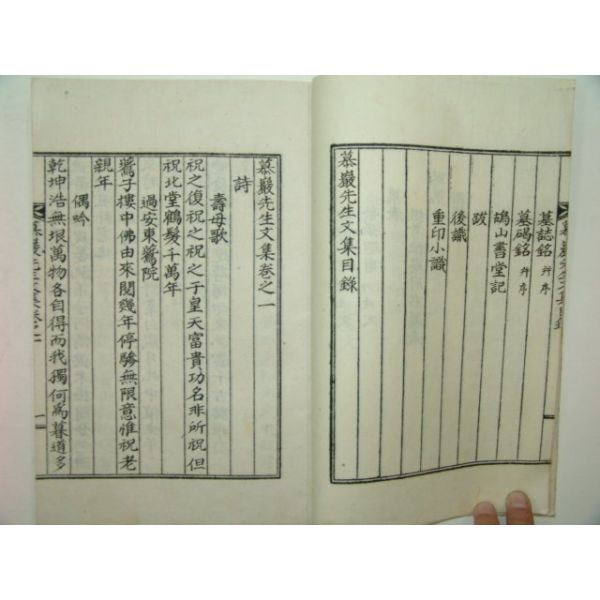 墓誌銘 幷序
墓碣銘 幷序
鵠山書堂記
跋
後識
重印小識
慕巖先生文集目錄
慕巖先生文集卷之一
詩
壽母歌
祝之復祝之祝之于皇天富貴功名非所祝但
祝北堂鶴髮千萬年
過安東鷰院
鷰子樓中佛由來閱幾年停驂無限意惟祝老
親年
偶吟
乾坤浩無垠萬物各自得而我獨何爲暮道多